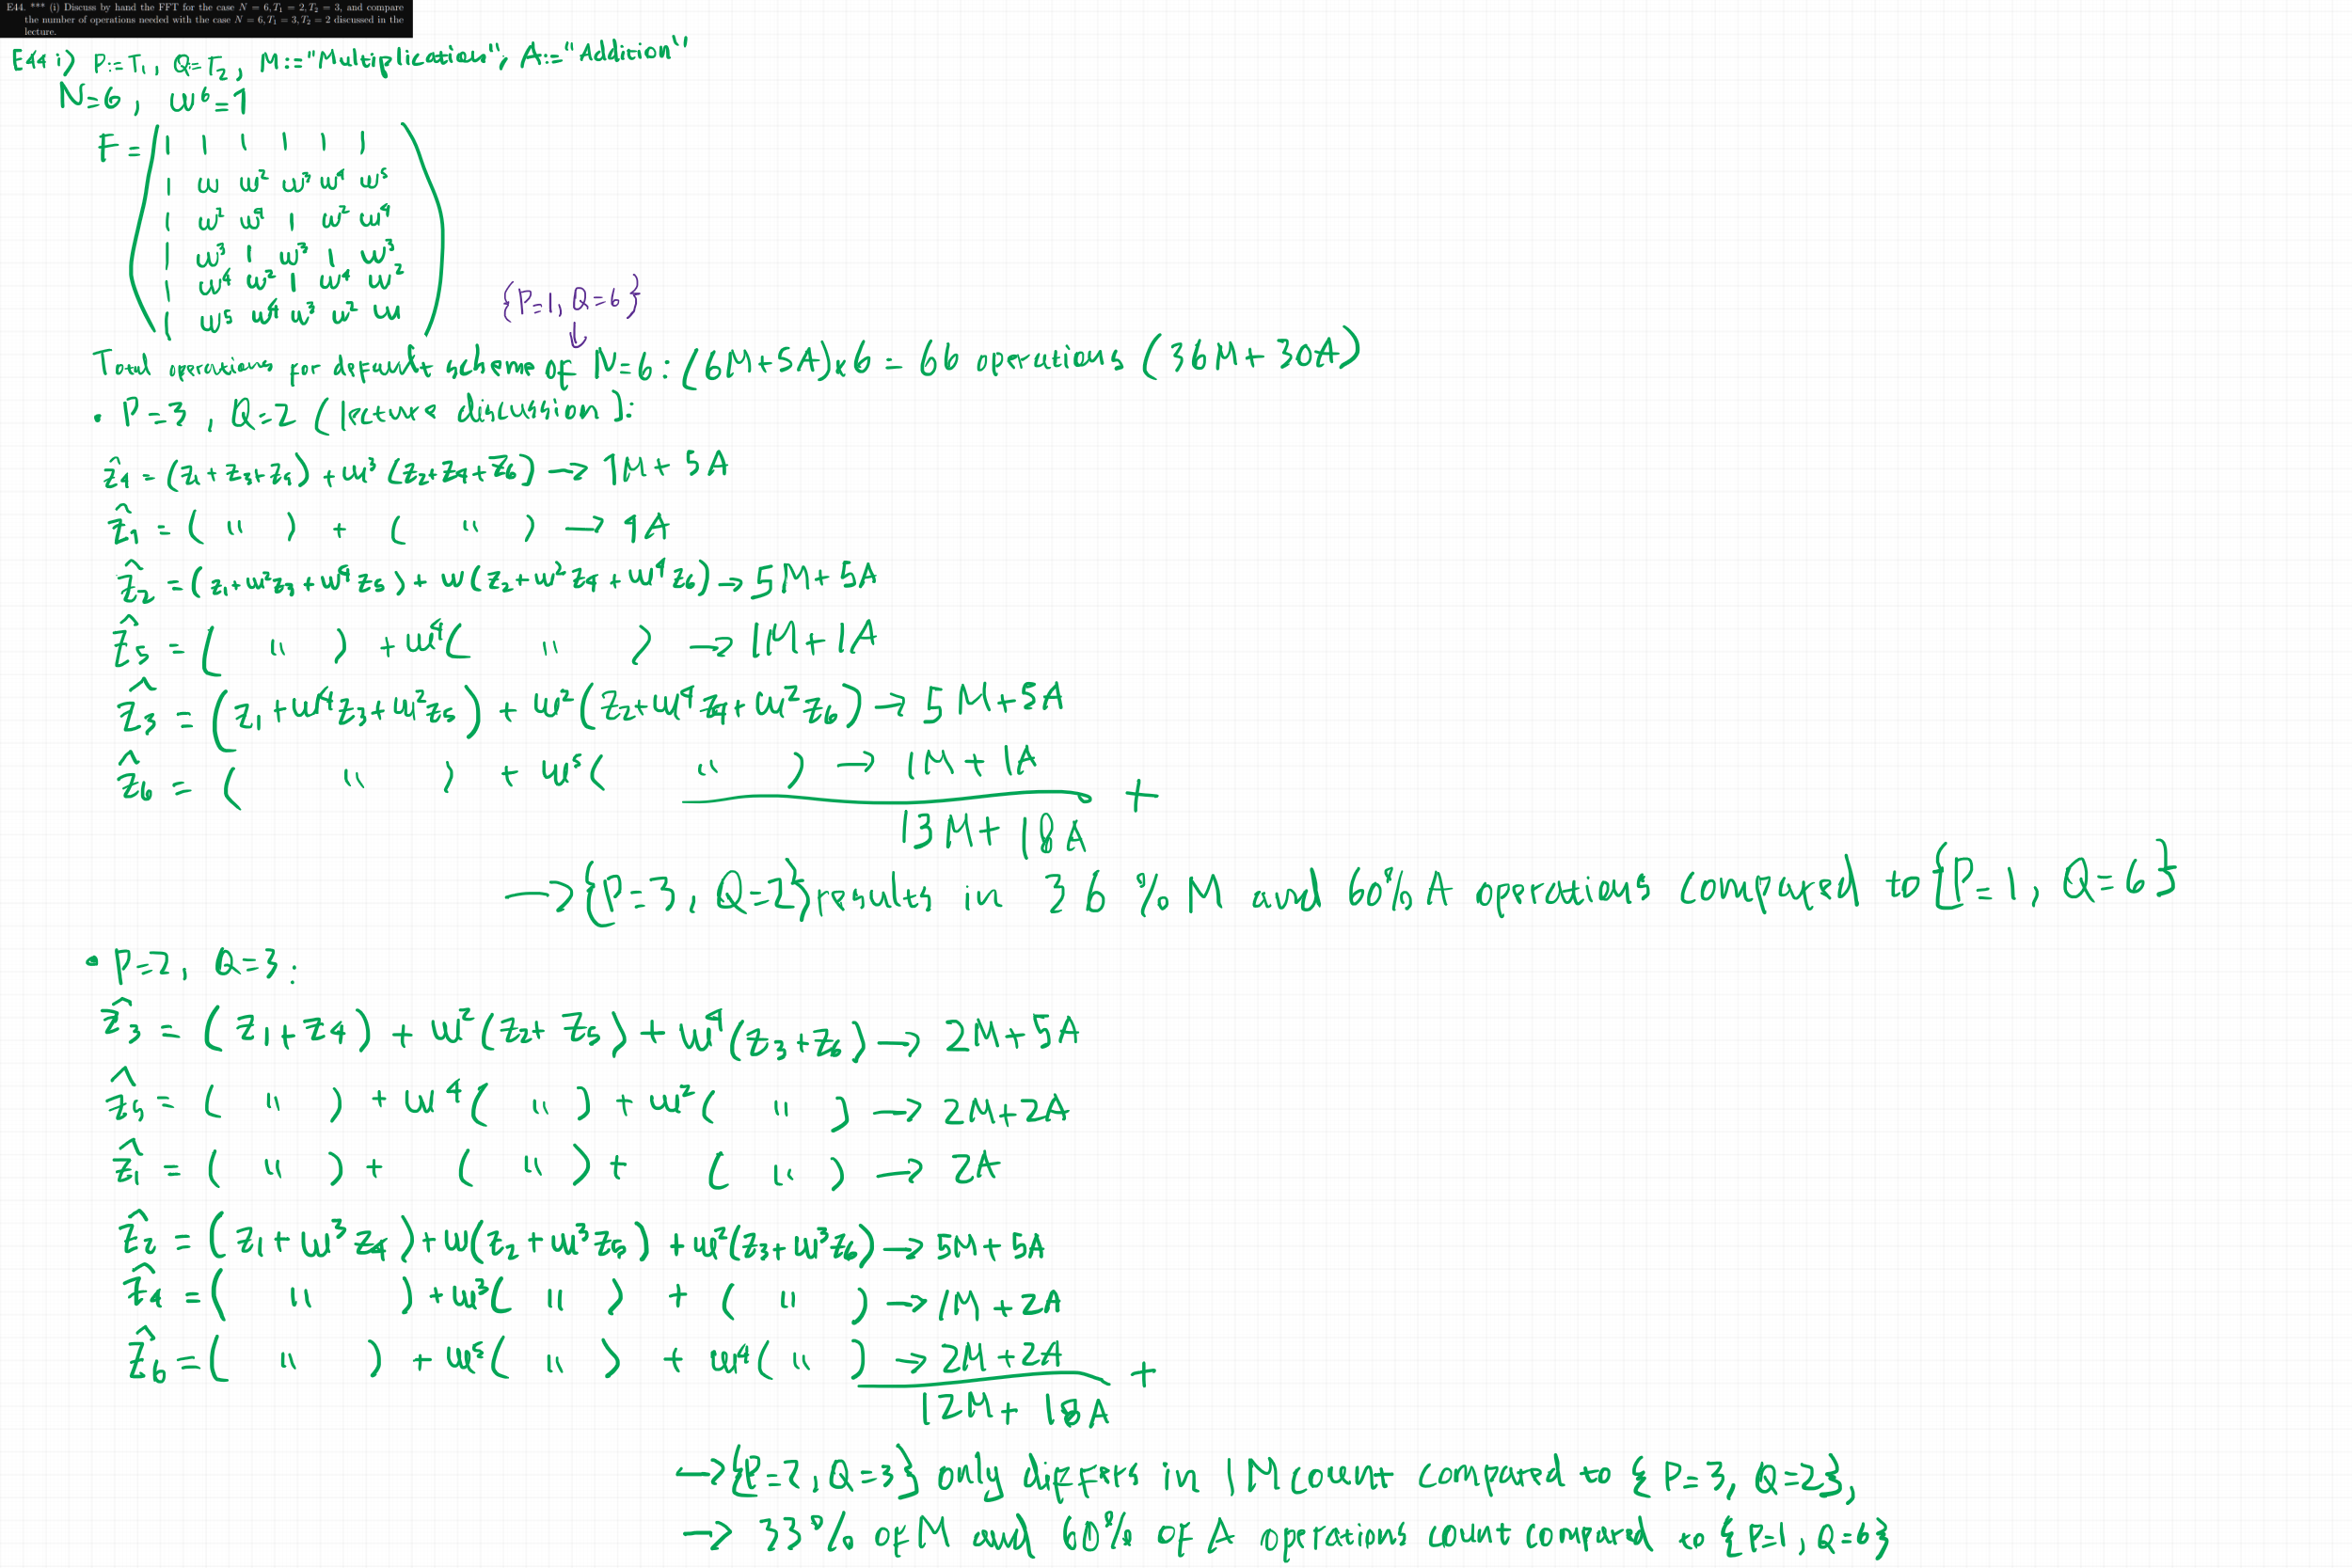 E44. *** (i) Discuss by hand the FFT for the case N = 6, T₁ = 2, T₂ = 3, and compare
the number of operations needed with the case N = 6, T₁ = 3, T₂ = 2 discussed in the
lecture.
E44 i) P:=T₁, Q:=T₂, M:="Multiplication", A:="Addition"
N=6, w⁶=1
F = ( 1 1 1 1 1 1
1 w w² w³ w⁴ w⁵
1 w² w⁴ 1 w² w⁴
1 w³ 1 w³ 1 w³
1 w⁴ w² 1 w⁴ w²
1 w⁵ w⁴ w³ w² w )
{P=1, Q=6}
↓
Total operations for default scheme of N=6: (6M+5A)x6 = 66 operations (36M+30A)
• P=3, Q=2 (lecture discussion):
ẑ₄ = (z₁+z₃+z₅) + w³(z₂+z₄+z₆) → 1M+5A
ẑ₁ = ( " ) + ( " ) → 1A
ẑ₂ = (z₁+w²z₃+w⁴z₅) + w(z₂+w²z₄+w⁴z₆) → 5M+5A
ẑ₅ = ( " ) + w⁴( " ) → 1M+1A
ẑ₃ = (z₁+w⁴z₃+w²z₅) + w²(z₂+w⁴z₄+w²z₆) → 5M+5A
ẑ₆ = ( " ) + w⁵( " ) → 1M+1A
+
13M+18A
→ {P=3, Q=2} results in 36% M and 60% A operations compared to {P=1, Q=6}
• P=2, Q=3:
ẑ₃ = (z₁+z₄) + w²(z₂+z₅) + w⁴(z₃+z₆) → 2M+5A
ẑ₅ = ( " ) + w⁴( " ) + w²( " ) → 2M+2A
ẑ₁ = ( " ) + ( " ) + ( " ) → 2A
ẑ₂ = (z₁+w³z₄) + w(z₂+w³z₅) + w²(z₃+w³z₆) → 5M+5A
ẑ₄ = ( " ) + w³( " ) + ( " ) → 1M+2A
ẑ₆ = ( " ) + w⁵( " ) + w⁴( " ) → 2M+2A
+
12M+18A
→ {P=2, Q=3} only differs in 1M count compared to {P=3, Q=2},
→ 33% of M and 60% of A operations count compared to {P=1, Q=6}